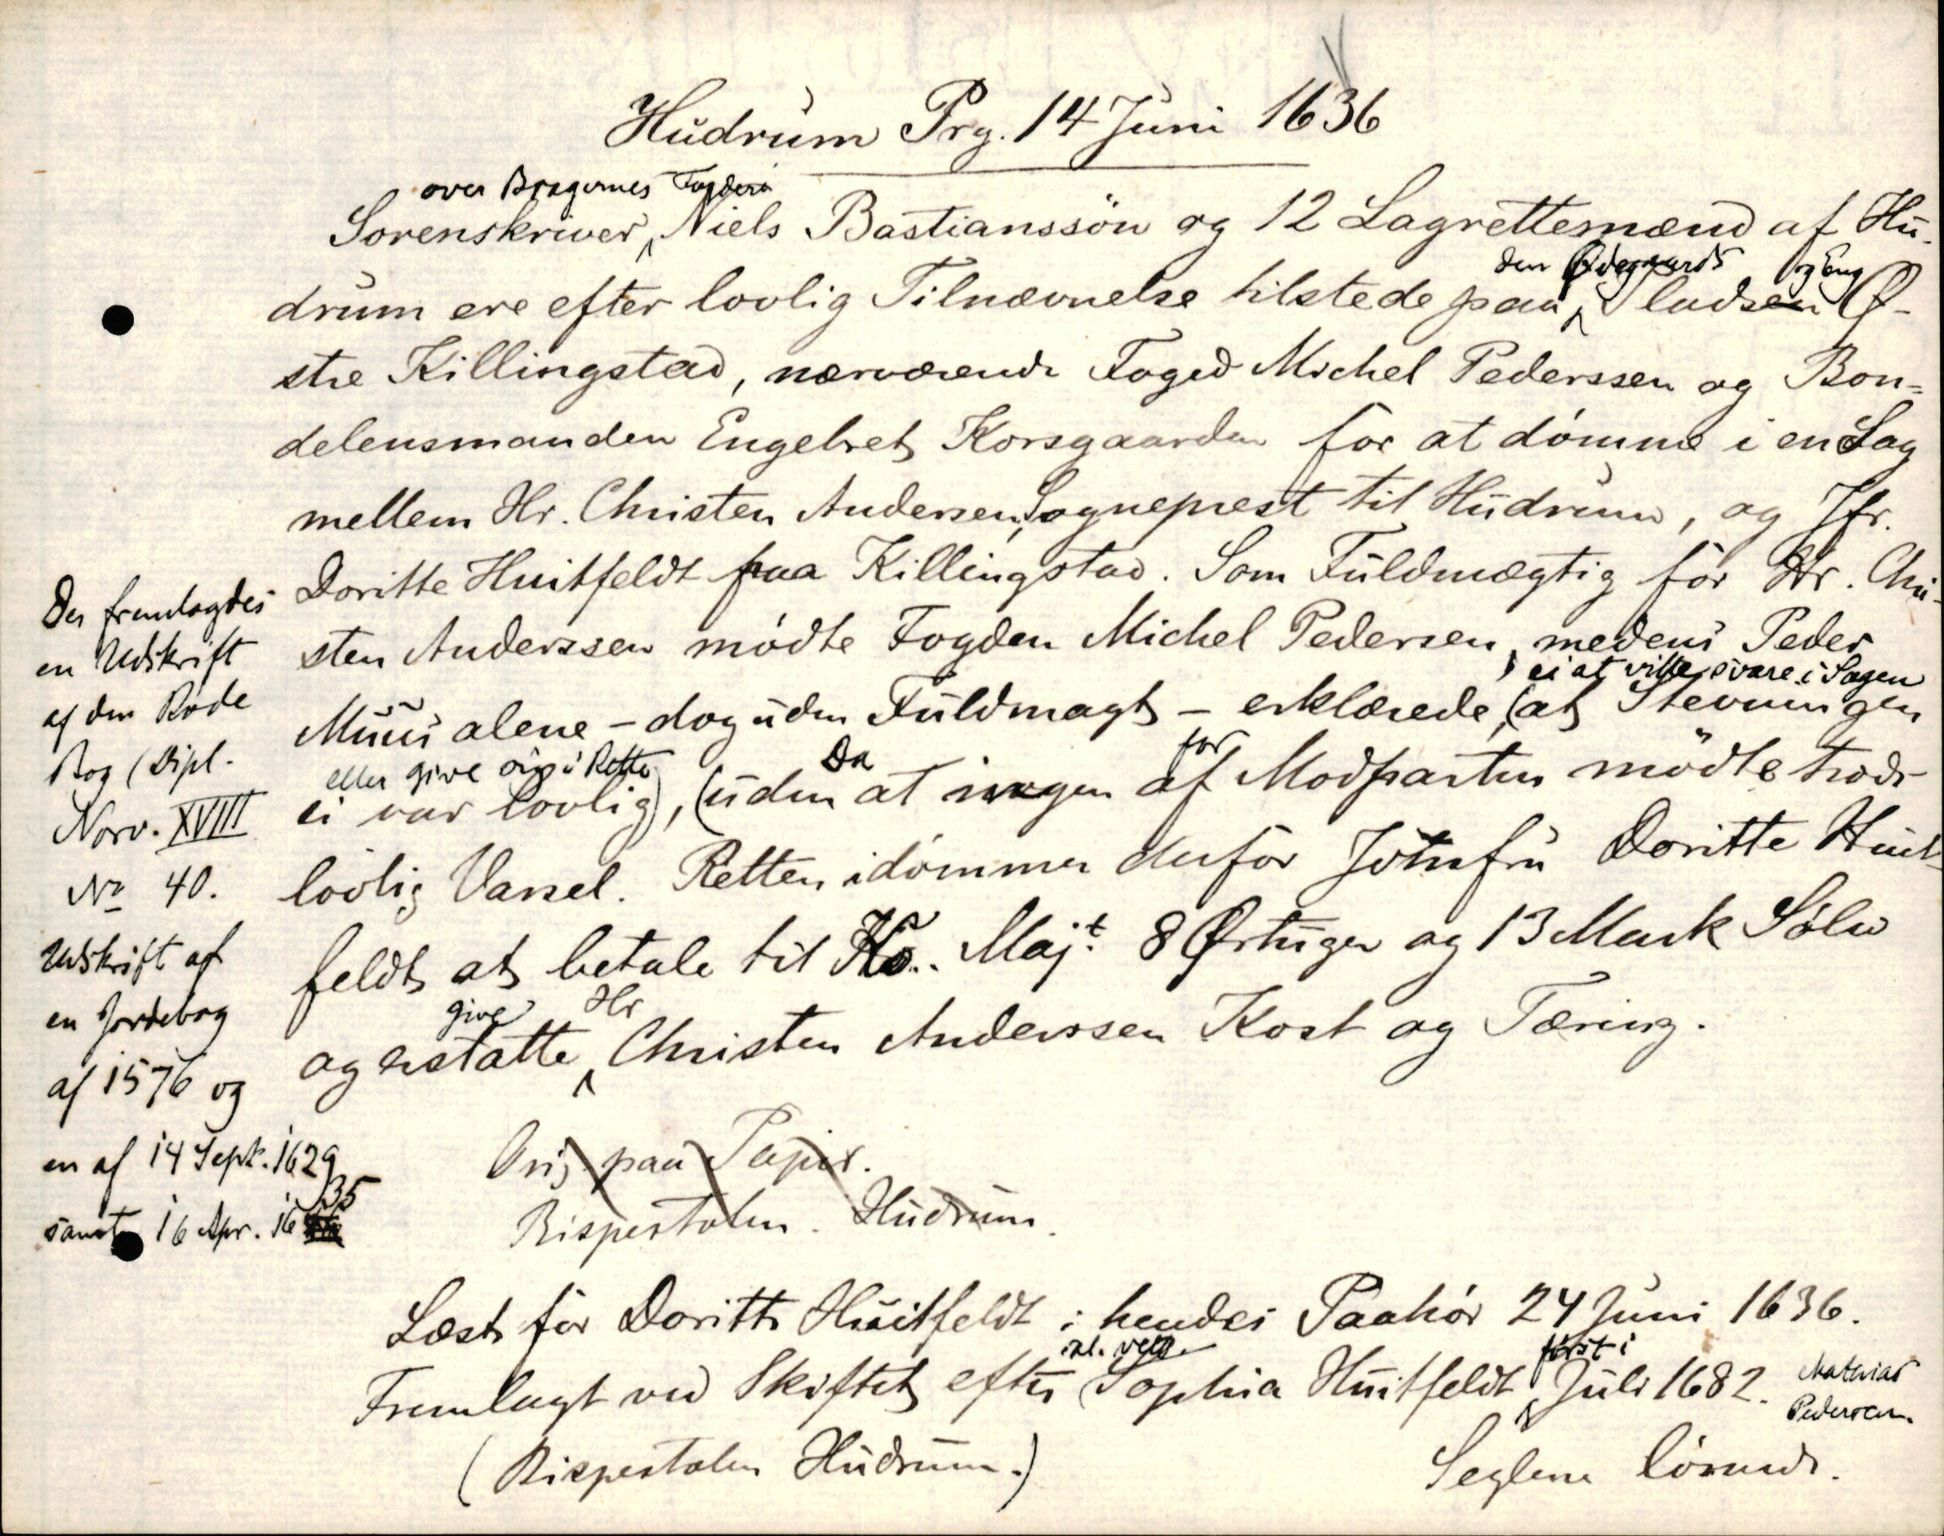 Hudrum Prg. 14 Juni 1636
over Bragernes Fogderi
Sorenskriver Niels Bastianssön og 12 Lagrettemænd af Hu-
den Ødegaards og Eng
drum ere efter lovlig Tilnævnelse tilstede paa Pladsen Ø-
stre Killingstad, nærværende Foged Michel Pederssen og Bon=
delensmanden Engelret Korsgaarden for at dömme i en Sag
mellem Hr. Christen Andersen, Sogneprest til Hudrum, og Jfr.
Doritte Huitfeldt paa Killingstad. Som Fuldmægtig for Hr. Chri-
sten Anderssen mödte Fogden Michel Pedersen, medens Peder
ei at ville svare i Sagen
Muus alene – dog uden Fuldmagt – erklærede, (at Stevningen
eller give sig i Rette Da for
ei var lovlig), (uden at ingen af Modparten mödte trods
lovlig Varsel. Retten idömmer derfor Jomfru Doritte Huit-
feldt at betale til Ko. Maj.t 8 Örtuger og 13 Mark Sölv
give Hr
og erstatte Christen Anderssen Kost og Tæring.
Der fremlagdes
en Udskrift
af den Röde
Bog (Dipl.
Norv. XVIII
No 40.
Udskrift af
en Jordebog
af 1576 og
en af 14 Sept. 1629
samt 16 Apr. 1635
Orig. paa Papir.
Bispestolen. Hudrum.
Læst for Doritte Huitfeldt i hendes Paahör 24 Juni 1636.
sal. först i
Fremlagt ved Skiftet efter Sophia Huitfeldt Juli 1682. Mathias
Pederssen.
(Bispestolen Hudrum.) Seglene lösnede.